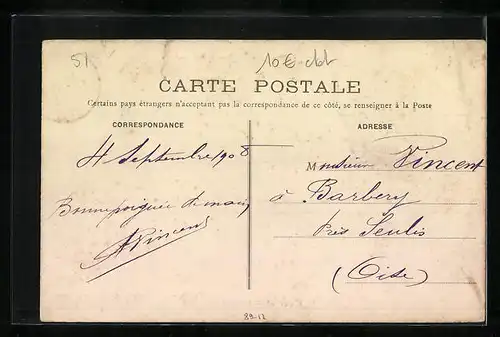 51
10€ dbt
CARTE POSTALE
Certains pays étrangers n'acceptant pas la correspondance de ce côté, se renseigner à la Poste
CORRESPONDANCE
4 Septembre 1908
Bonne poignée de main
Vincent
ADRESSE
Monsieur Vincent
à Barbery
près Senlis
(Oise)
89-12